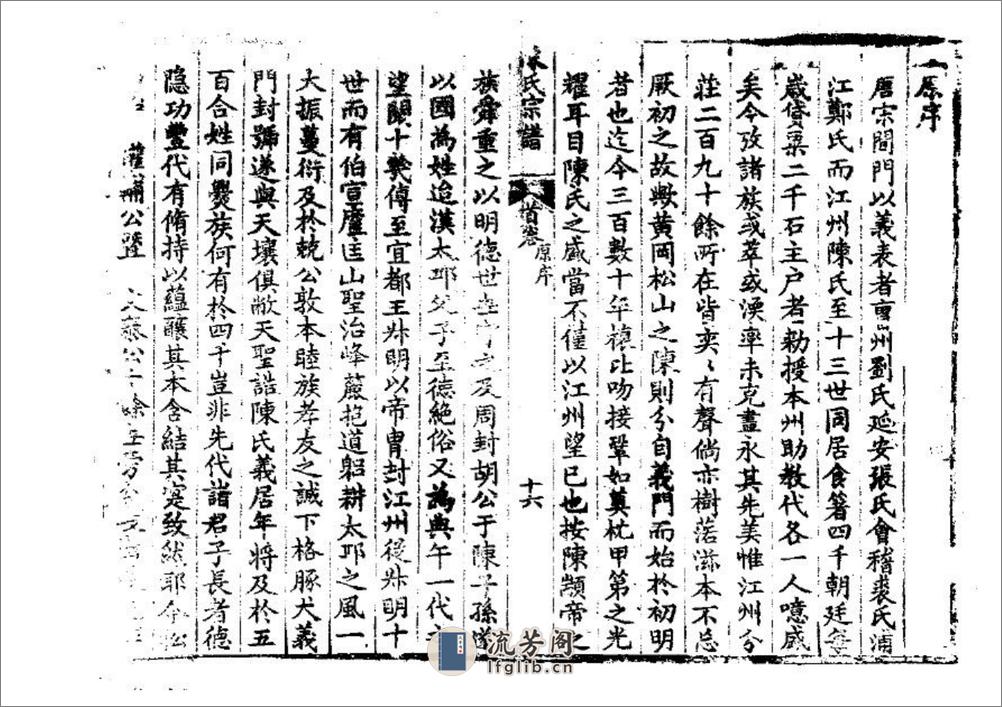 原序
唐宋間門以義表者亶州劉氏延安張氏會稽裘氏浦
江鄭氏而江州陳氏至十三世同居食箸四千朝廷每
歲貸粟二千石主戶者勅授本州助教代各一人噫盛
矣今攷諸族或萃或渙率未克盡永其先美惟江州分
莊二百九十餘所在皆奕〻有聲倘亦樹落滋本不忘
厥初之故歟黃岡松山之陳則分自義門而始於初明
者也迄今三百數十年穰比吻接鞏如奠枕甲第之光
耀耳目陳氏之盛當不僅以江州望已也按陳顓帝之
氏宗譜
首卷
原序
十六
族舜重之以明德世及周封胡公于陳子孫遂
以國為姓迨漢太邱父子至德絕俗又為典午一代
望閥十數傳至宜都王叔明以帝胄封江州後叔明十
世而有伯宣廬匡山聖治峰嚴抱道躬耕太邱之風一
大振蔓衍及於兢公敦本睦族孝友之誠下格豚犬義
門封號遂與天壤俱敝天聖誥陳氏義居年將及於五
百合姓同爨族何有於四千豈非先代諸君子長者德
隐功豐代有脩持以蘊釀其本含結其寔致然耶今松
公暨
流芳阁
lfglib.cn